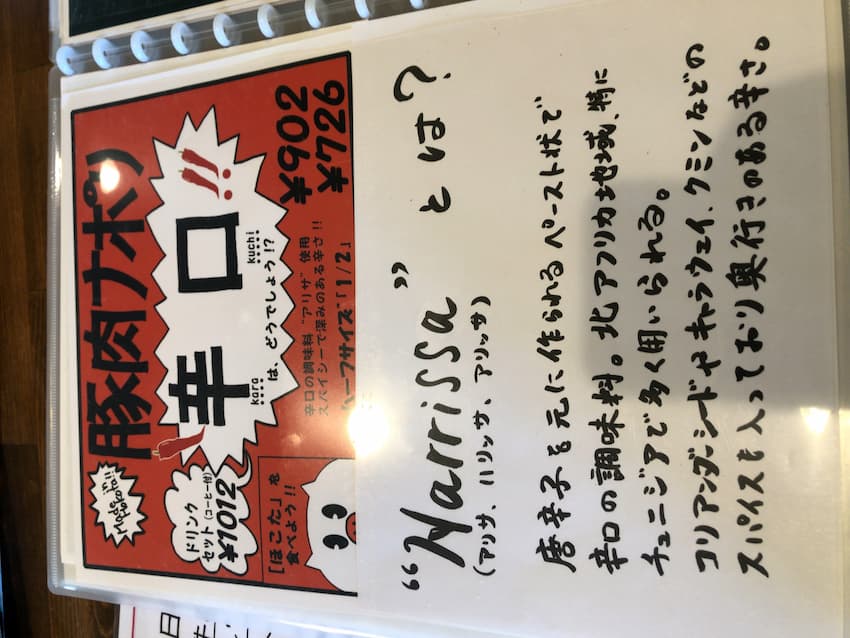 Made in
Hokota!!
豚肉ナポリ
辛口!!
kara kuchi
は、どうでしょう!?
¥902
¥726
ドリンク
セット(コーヒー付)
¥1012
辛口の調味料“アリサ”使用
スパイシーで深みのある辛さ!!
ハーフサイズ「1/2」
[ほこた」を
食べよう!!
“Harrissa”とは?
(アリサ、ハリッサ、アリッサ)
唐辛子を元に作られるペースト状で
辛口の調味料。北アフリカ地域、特に
チュニジアで多く用いられる。
コリアンダーシードやキャラウェイ、クミンなどの
スパイスも入っており奥行きのある辛さ。